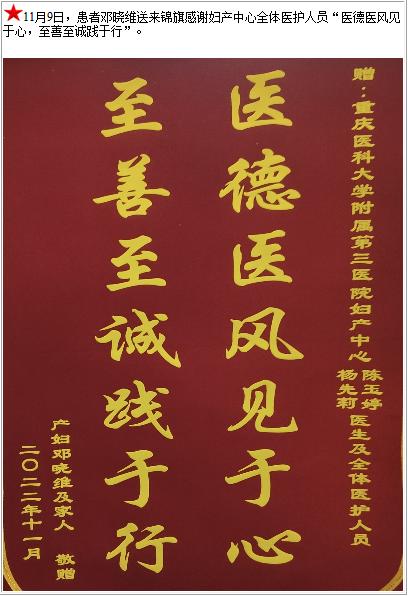 ★11月9日，患者邓晓维送来锦旗感谢妇产中心全体医护人员“医德医风见
于心，至善至诚践于行”。
赠：重庆医科大学附属第三医院妇产中心 陈玉婷 杨先莉 医生及全体医护人员
医德医风见于心
至善至诚践于行
产妇邓晓维及家人 敬赠
二〇二二年十一月